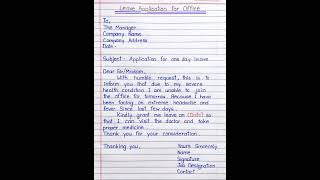 Leave Application for Office
To,
The Manager
Company Name
Company Address
Date -
Subject:- Application for one day leave
Dear Sir/Madam,
With humble request, this is to
inform you that due to my severe
health condition I am unable to join
the office for tomorrow. Because I have
been facing an extreme headache and
fever since last few days.
Kindly grant me leave on (Date) so
that I can visit the doctor and take
proper medicine.
Thank you for your consideration.
Thanking you,
Yours Sincerely
Name
Signature
Job Designation
Contact